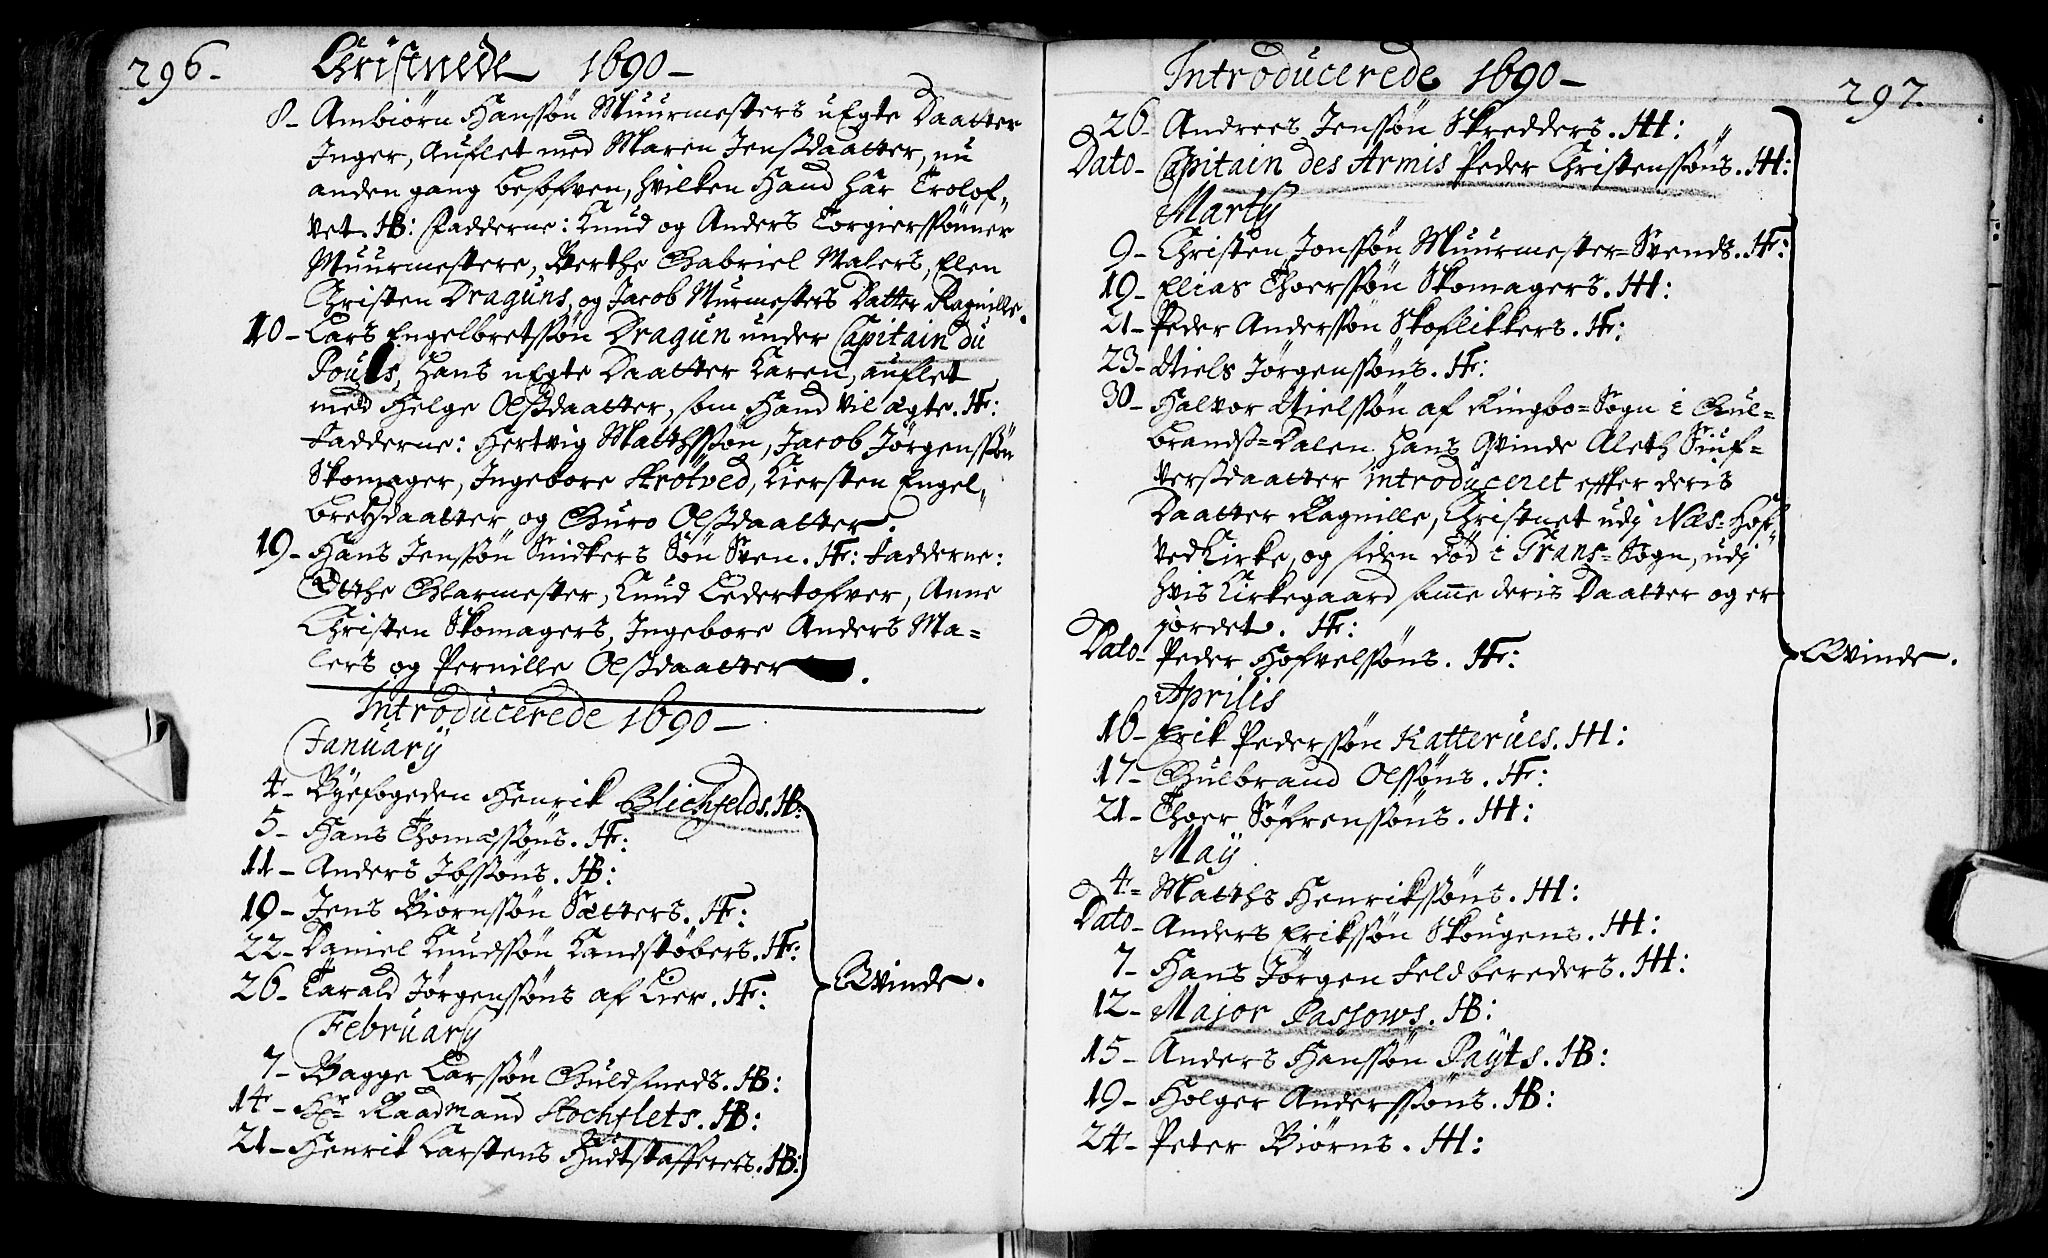 296-
Christnede 1690-
8- Ambiörn Hanssøn Muurmesters uEgte Daatter
Inger, Auflet med Maren Jensdaatter, nu
anden gang besofven, hvilken Hand har Trolof„
vet. HB: Fadderne: Knud og Anders Torgierssønner
Muurmestere, Berthe Gabriel Malers, Elen
Christen Dragüns, og Jacob Murmesters Datter Ragnille.
10- Lars Engelbretssøn Dragun under Capitain du
Pouls, Hans uEgte Daatter Karen, auflet
med Helge Olsdaatter, som Hand vil ægte. HF:
Fadderne: Hertvig Matthssøn, Jacob Jörgenssøn
Skomager, Ingebore Strötved, Kiersten Engel„
bretzdaatter og Guro Olsdaatter.
19- Hans Jenssøn Snidkers Søn Sven. HF: Fadderne:
Otthe Glarmester, Knud Ledertofver, Anne
Christen Skomagers, Ingebore Anders Ma=
lers og Pernille Olsdaatter.
Introducerede 1690-
January
4- Byefogeden Henrik Blichfelds. HB:
5- Hans Thomæssøns. HF:
11- Anders Ibssøns. HB:
19- Jens Biørnssøn Sætters. HF:
22- Daniel Knudssøn Kandstøbers. HF:
26- Tarald Jörgenssøns af Lier. HF:
Qvinde.
February
7- Bagge Larssøn Guldsmeds. HB:
14- Hr Raadmand Stochflets. HB:
21- Henrik Karstens Hudtstafferers. HB:
Introducerede 1690-
297.
26- Andrees Jenssøn Skredders. HH:
Dato- Capitain des Armis Peder Christenssøns. HH:
Marty
9- Christen Jonssøn Muurmester=Svends. HF:
19- Elias Thoerssøn Skomagers. HH:
21- Peder Anderssøn Skoflikkers. HF:
23- Niels Jörgenssøns. HF:
30- Halvor Nielssøn af Ringbo=Sogn i Gul=
brands=Dalen, Hans Qvinde Aleth Siuf=
versdaatter introduceret efter deris
Daatter Ragnille, Christnet udj Næs=Hof„
vedKirke, og siden død i Trans=Sogn, udj
hvis Kirkegaard samme deris Daatter og er
jordet. HF:
Dato- Peder Hofvelsøns. HF:
Qvinde.
Aprilis
16- Erik Pederssøn Katterues. HH:
17- Gulbrand Olssøns. HF:
21- Thoer Søfrenssøns. HH:
May
4- Matths Henrikssøns. HH:
Dato- Anders Erikssøn Skougens. HH:
7- Hans Jörgen Feldbereders. HH:
12- Major Passows. HB:
15- Anders Hanssøn Payts. HB:
19- Holger Anderssøns. HB:
24- Peter Biørns. HH: